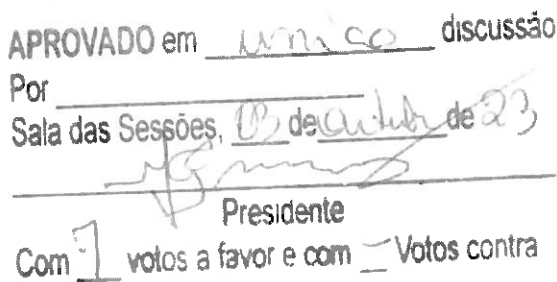 APROVADO em único discussão
Por
Sala das Sessões, 03 de outubro de 23
Presidente
Com votos a favor e com — Votos contra